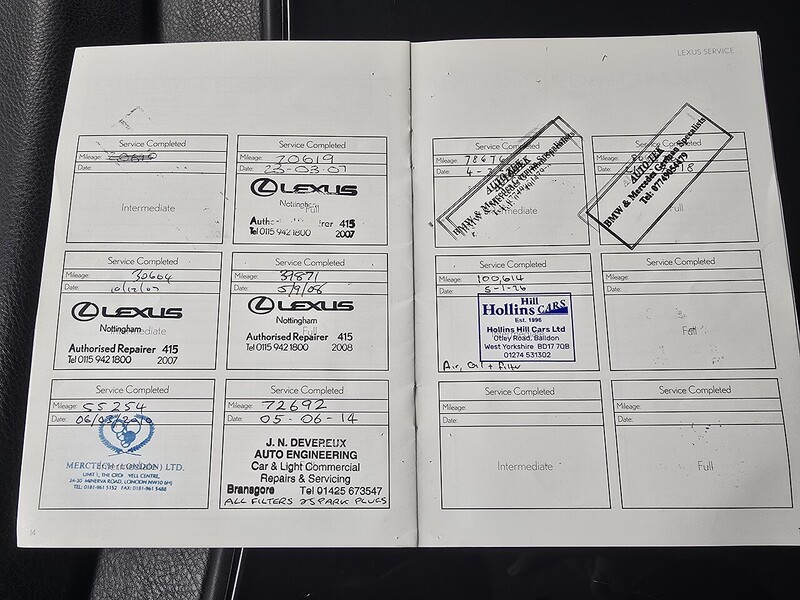 Service Completed
Mileage:
Date:
Intermediate
Service Completed
Mileage: 20619
Date: 23-03-07
LEXUS
Nottingham
Full
415
Tel 0115 942 1800 2007
Service Completed
Mileage: 30604
Date: 10/12/07
LEXUS
Nottingham
Intermediate
Authorised Repairer 415
Tel 0115 942 1800 2007
Service Completed
Mileage: 39871
Date: 5/9/08
LEXUS
Nottingham
Full
Authorised Repairer 415
Tel 0115 942 1800 2008
Service Completed
Mileage: 55254
Date: 06/03/2010
MERCTECH (LONDON) LTD.
24-30 MINERVA ROAD, LONDON NW10 6HJ
TEL: 0181-961 5152 FAX: 0181-961 5488
Service Completed
Mileage: 72692
Date: 05-06-14
J. N. DEVEREUX
AUTO ENGINEERING
Car & Light Commercial
Repairs & Servicing
Bransgore Tel 01425 673547
ALL FILTERS & SPARK PLUGS
LEXUS SERVICE
Service Completed
Mileage:
Date:
Intermediate
BMW & Mercedes German Specialists
Service Completed
Mileage:
Date:
Full
AUTO-TEK
BMW & Mercedes German Specialists
Service Completed
Mileage: 100,614
Date: 5-1-26
Hill
Hollins CARS
Est. 1996
Hollins Hill Cars Ltd
Otley Road, Baildon
West Yorkshire BD17 7QB
01274 531302
Air, Oil + Filter
Service Completed
Mileage:
Date:
Full
Service Completed
Mileage:
Date:
Intermediate
Service Completed
Mileage:
Date:
Full